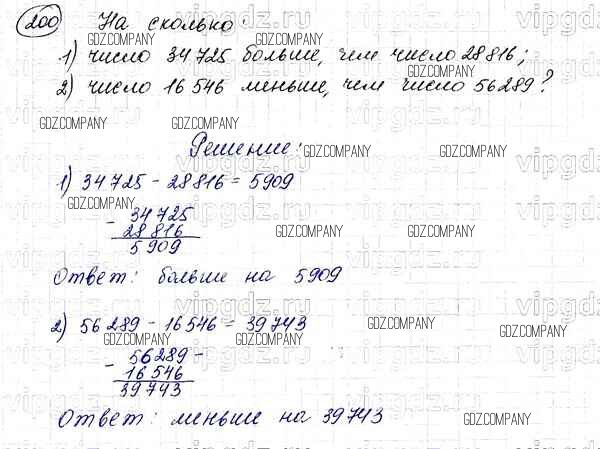 200 На сколько:
1) число 34 725 больше, чем число 28 816;
2) число 16 546 меньше, чем число 56 289?
Решение:
1) 34 725 - 28 816 = 5 909
- 34 725
28 816
5 909
Ответ: больше на 5 909
2) 56 289 - 16 546 = 39 743
- 56 289 -
16 546
39 743
Ответ: меньше на 39 743
GDZ.COMPANY
vipgdz.ru